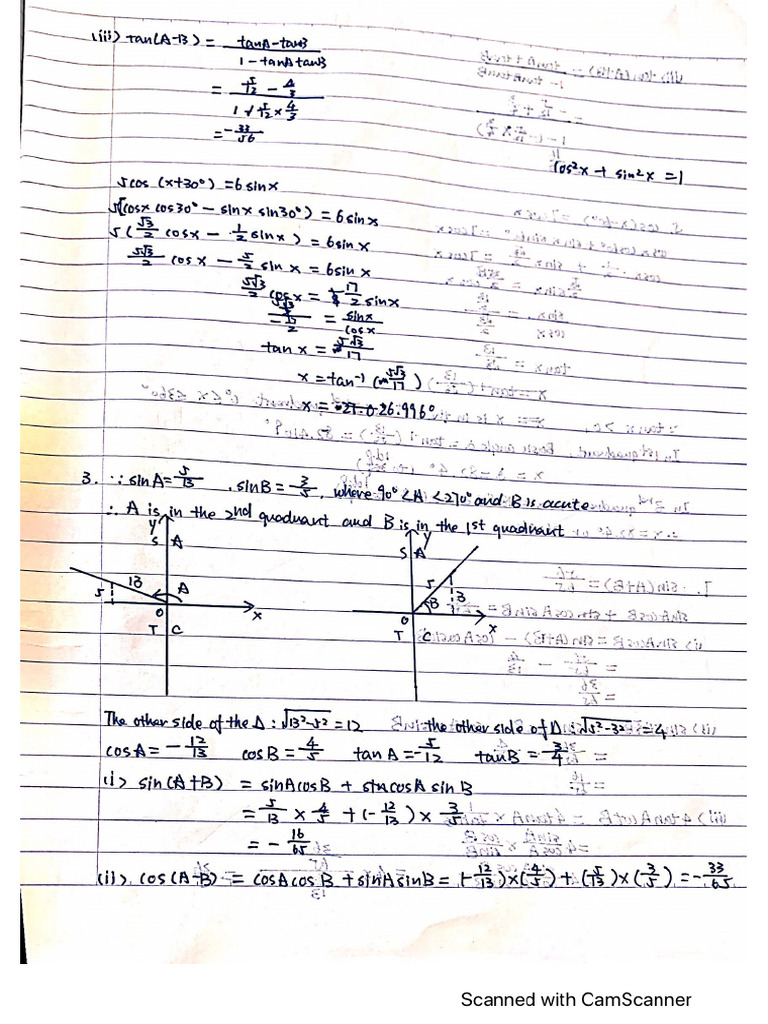 (iii) tan(A-B) = tanA - tanB / 1 - tanA tanB
= 5/12 - 4/3 / 1 + 5/12 × 4/3
= -33/56
cos²x + sin²x = 1
5cos (x+30°) = 6 sinx
5(cosx cos30° - sinx sin30°) = 6 sinx
5(√3/2 cosx - 1/2 sinx) = 6sinx
5√3/2 cosx - 5/2 sinx = 6sin x
5√3/2 cosx = 17/2 sinx
= sinx/cosx
tan x = 5√3/17
x = tan⁻¹ (5√3/17)
x = 26.996°
3. ∵ sinA = 5/13, sinB = 3/5, where 90° < A < 270° and B is acute
∴ A is in the 2nd quadrant and B is in the 1st quadrant
y y
S A S A
13 A 5 3
5 B
O x O x
T C T C
The other side of the Δ: √13²-5² = 12 the other side of Δ: √5²-3² = 4
cosA = -12/13 cosB = 4/5 tanA = -5/12 tanB = 3/4
(i) sin(A+B) = sinAcosB + cosA sinB
= 5/13 × 4/5 + (-12/13) × 3/5
= -16/65
(ii) cos(A-B) = cosAcosB + sinA sinB = (-12/13)×(4/5) + (5/13)×(3/5) = -33/65
Scanned with CamScanner